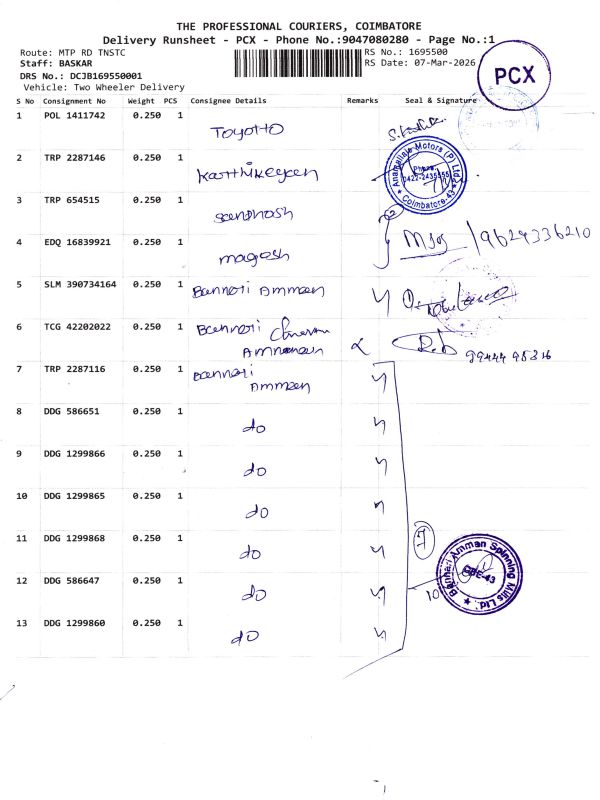 THE PROFESSIONAL COURIERS, COIMBATORE
Delivery Runsheet - PCX - Phone No.:9047080280 - Page No.:1
Route: MTP RD TNSTC
RS No.: 1695500
Staff: BASKAR
RS Date: 07-Mar-2026
DRS No.: DCJB169550001
Vehicle: Two Wheeler Delivery
PCX
S No Consignment No Weight PCS Consignee Details Remarks Seal & Signature
1 POL 1411742 0.250 1 Toyotto
2 TRP 2287146 0.250 1 Karthikeyan
Anamallais Motors (P) Ltd
Phone:
0422-2435455
Coimbatore-43
3 TRP 654515 0.250 1 Santhosh
4 EDQ 16839921 0.250 1 magesh
9629336210
5 SLM 390734164 0.250 1 Bannari Amman
6 TCG 42202022 0.250 1 Bannari
99444 95316
7 TRP 2287116 0.250 1 Bannari
Amman
8 DDG 586651 0.250 1 do
9 DDG 1299866 0.250 1 do
10 DDG 1299865 0.250 1 do
11 DDG 1299868 0.250 1 do
7
Bannari Amman Spinning Mills Ltd
CBE-43
12 DDG 586647 0.250 1 do
10
13 DDG 1299860 0.250 1 do